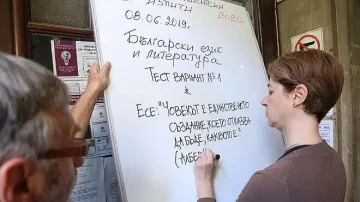 ИЗПИТИ
08.06.2019г.
Български език
и литература
Тест вариант №1
*
Есе: "Човекът е единственото
създание, което отказва
да бъде, каквото е."
(Албер